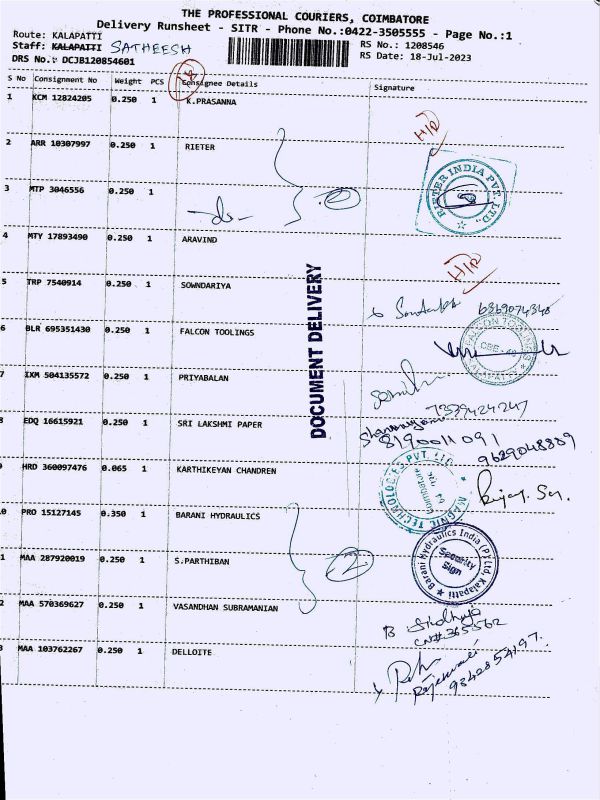 THE PROFESSIONAL COURIERS, COIMBATORE
Delivery Runsheet - SITR - Phone No.:0422-3505555 - Page No.:1
Route: KALAPATTI
RS No.: 1208546
Staff: KALAPATTI SATHEESH
RS Date: 18-Jul-2023
DRS No.: DCJB120854601
S No Consignment No Weight PCS Consignee Details Signature
18
1 KCM 12824205 0.250 1 K.PRASANNA
H/D
2 ARR 10307997 0.250 1 RIETER
RIETER INDIA PVT. LTD.
3 MTP 3046556 0.250 1 -do-
4 MTY 17893490 0.250 1 ARAVIND
H/D
5 TRP 7540914 0.250 1 SOWNDARIYA
6369074348
6 BLR 695351430 0.250 1 FALCON TOOLINGS
FALCON TOOLINGS
7 IXM 504135572 0.250 1 PRIYABALAN
7339424247
8 EDQ 16615921 0.250 1 SRI LAKSHMI PAPER
8190011091
9629048889
9 HRD 360097476 0.065 1 KARTHIKEYAN CHANDREN
MAGNIC TECHNOLOGIES PVT LTD
Coimbatore
10 PRO 15127145 0.350 1 BARANI HYDRAULICS
Barani Hydraulics India (P) Ltd, Kalapatti
Security
Sign
11 MAA 287920019 0.250 1 S.PARTHIBAN
2
12 MAA 570369627 0.250 1 VASANDHAN SUBRAMANIAN
365562
13 MAA 103762267 0.250 1 DELLOITE
Rajeswari
DOCUMENT DELIVERY